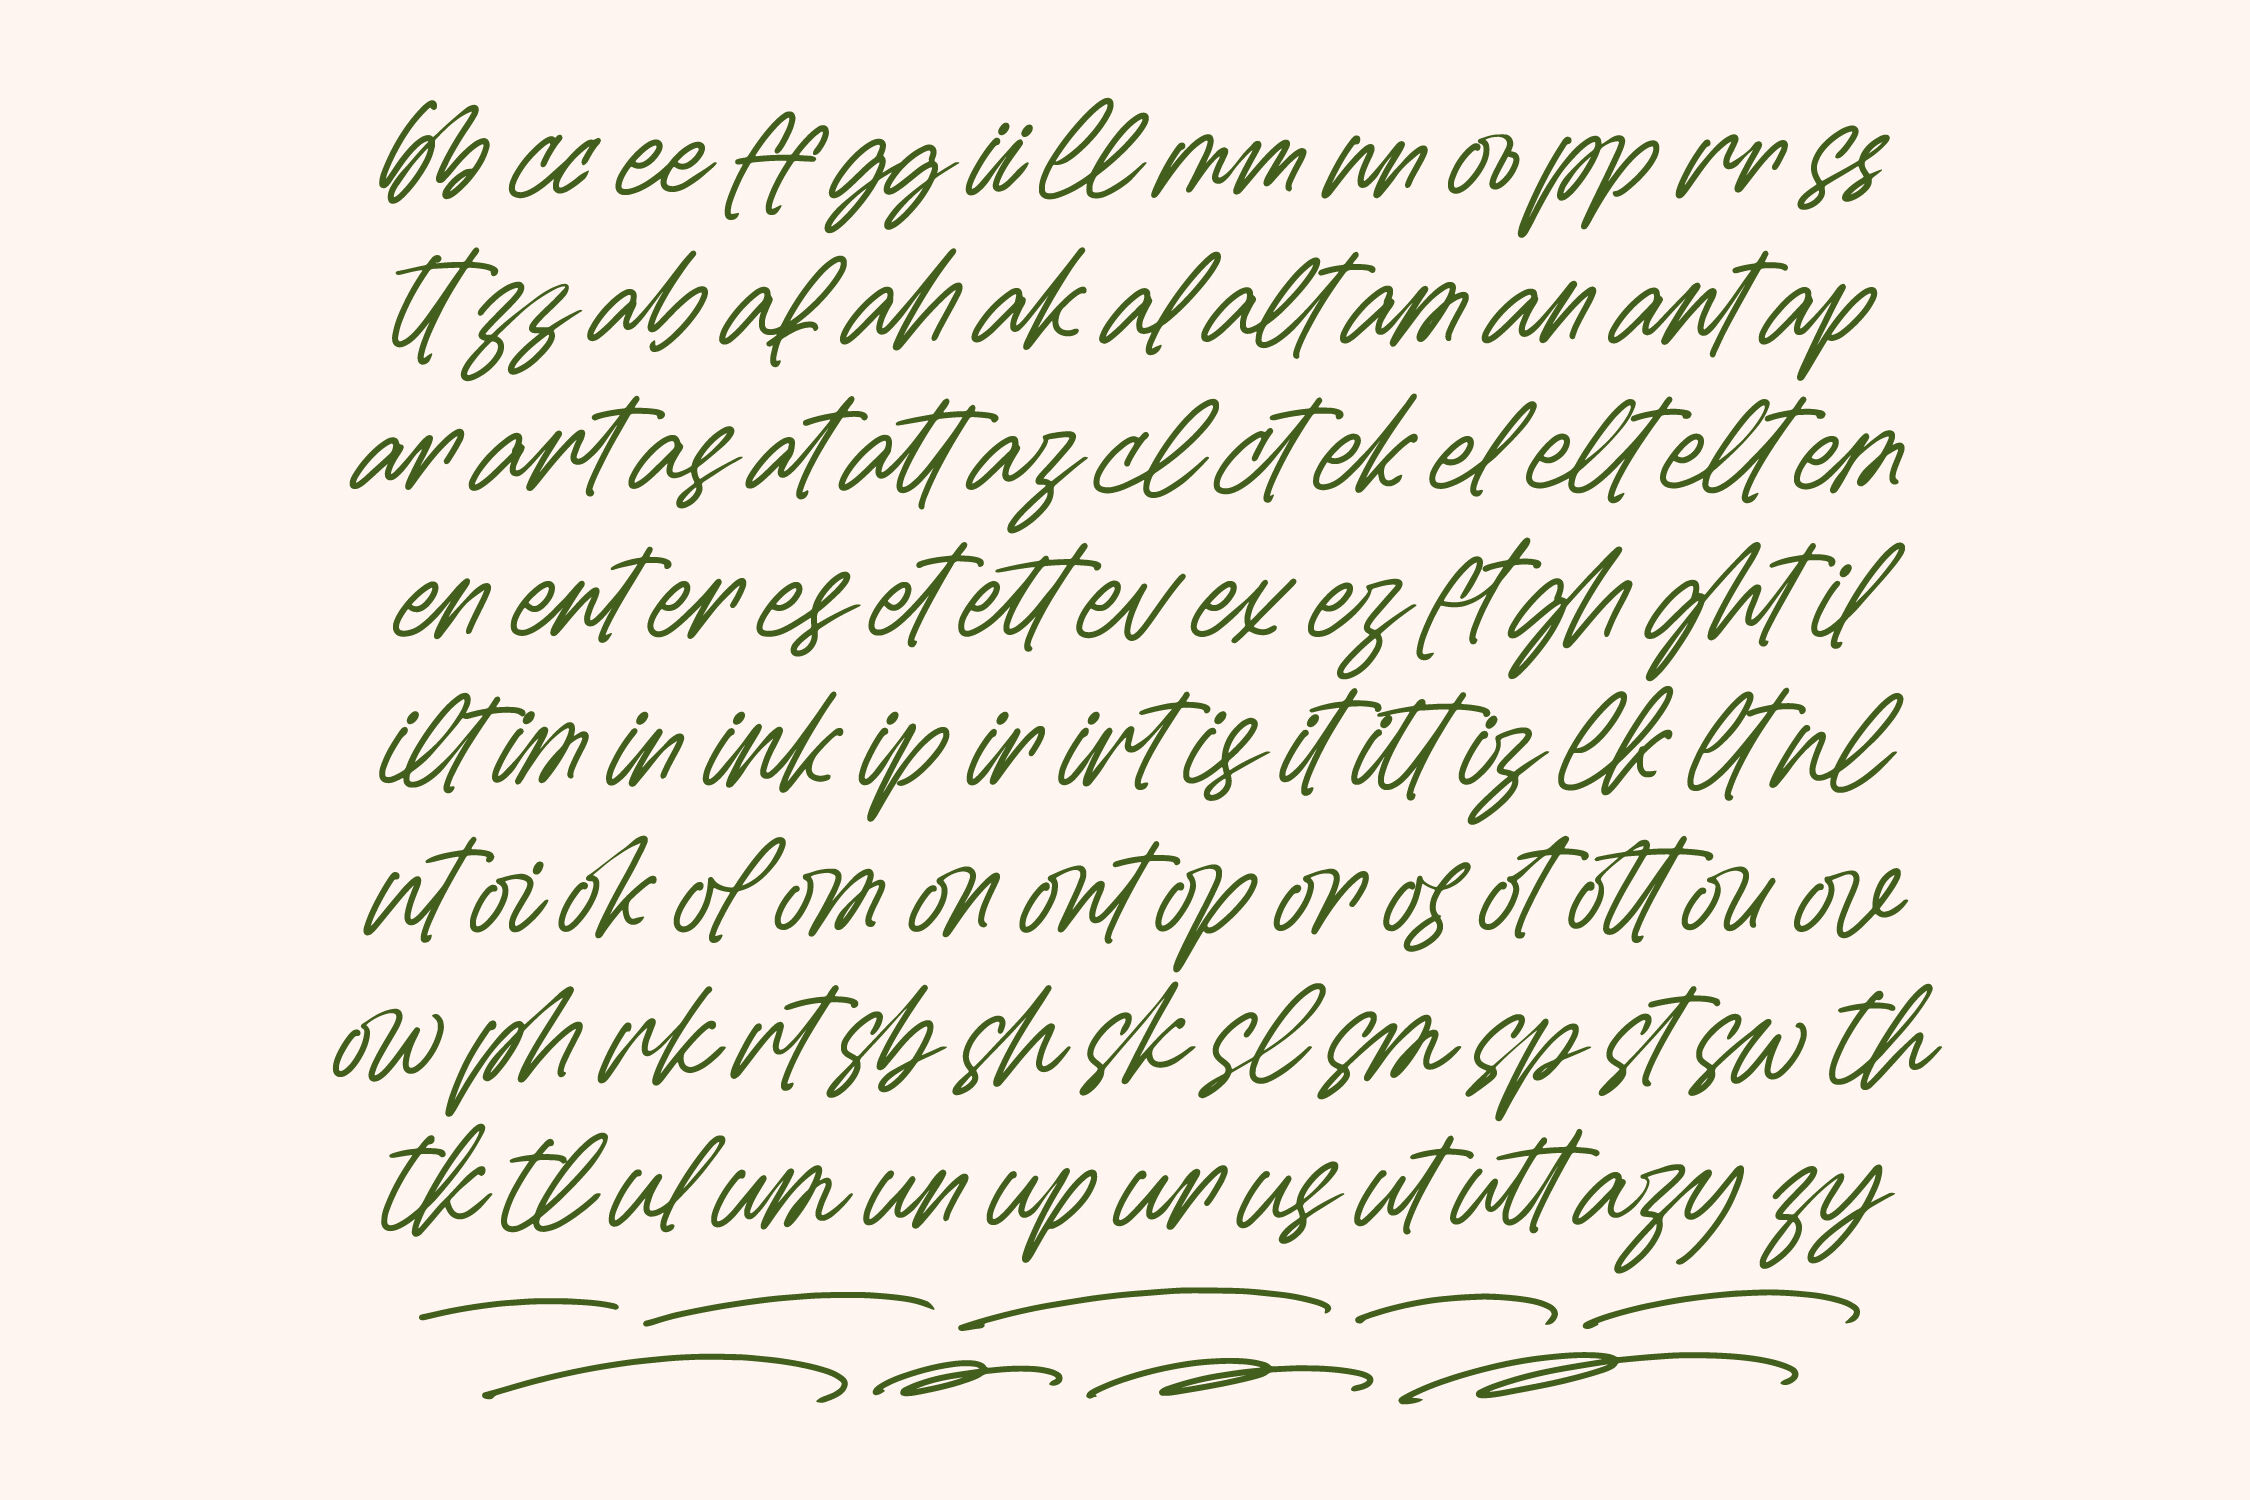 bb cc ee ff gg ii ll mm nn oo pp rr ss
tt zz ab af ah ak al alt am an ant ap
ar art as at att az cl ct ek el elt elt em
en ent er es et ett ev ex ez ft gh ght il
ilt im in ink ip ir irt is it itt iz lk lt nl
nt oi ok ol om on ont op or os ot ott ou ov
ow ph rk rt sb sh sk sl sm sp st sw th
tk tl ul um un up ur us ut utt azy zy